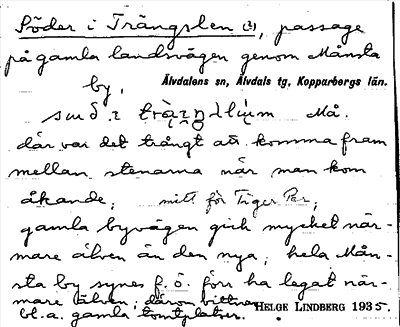 Söder i Trängslen (2), passage
på gamla landsvägen genom Månsta
by.
Älvdalens sn, Älvdals tg, Kopparbergs län.
Må.
där var det trångt att komma fram
mellan stenarna när man kom
åkande; mitt för Tiger Per;
gamla byvägen gick mycket när-
mare älven än den nya; hela Mån-
sta by synes f. ö. förr ha legat när-
mare älven; därom vittnar
bl. a. gamla tomtplatser.
HELGE LINDBERG 1935.